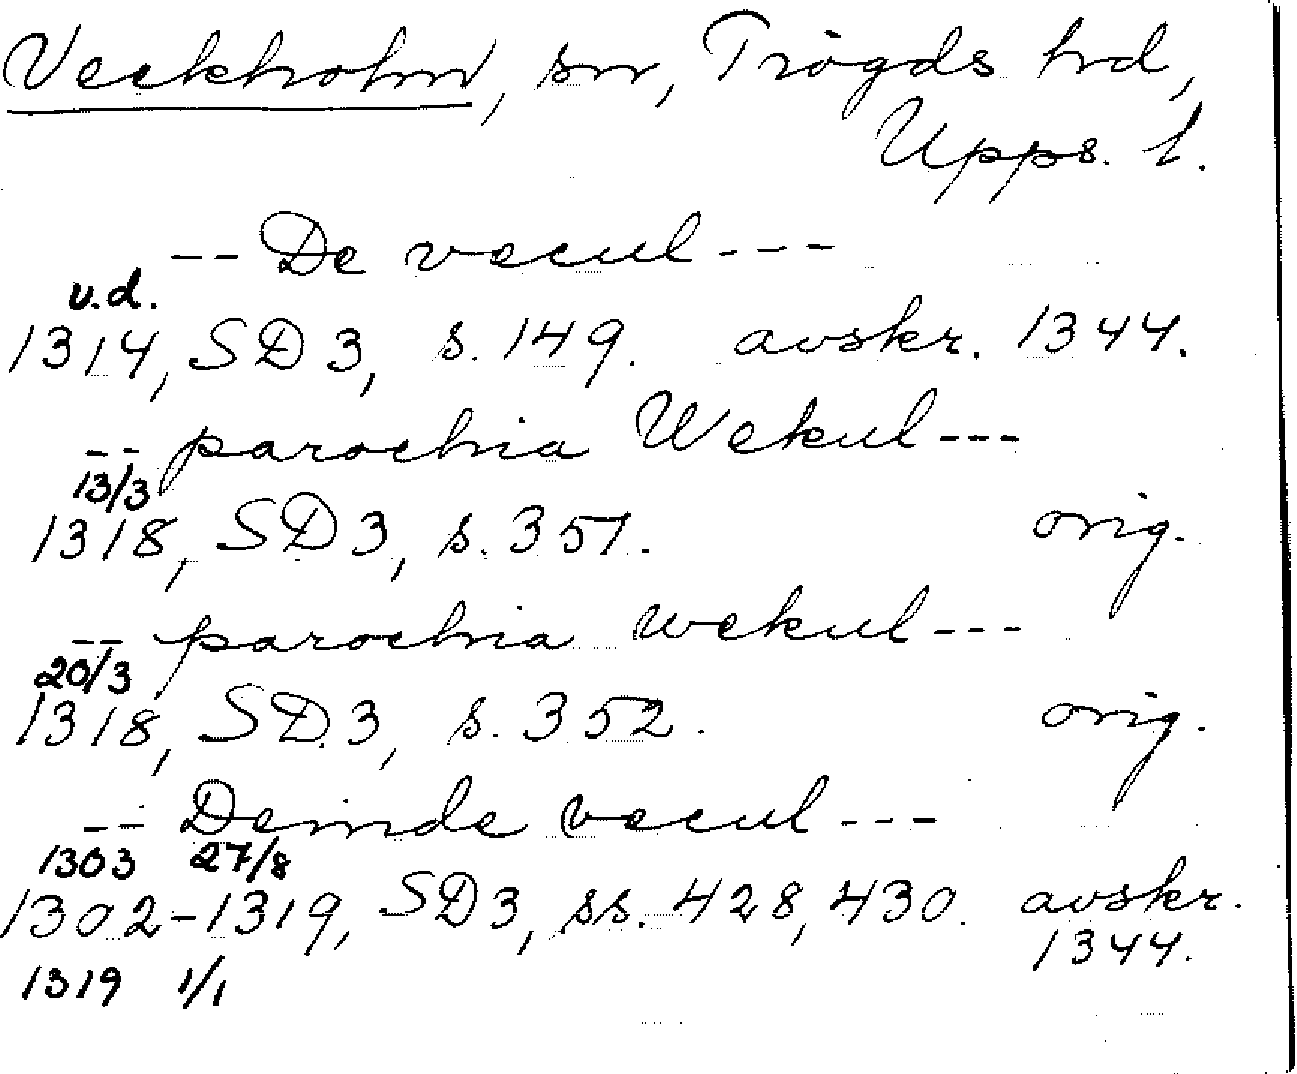 Veckholm, sn, Trögds hd,
Upps. l.
-- De vecul ---
u.d.
1314, SD 3, s. 149. avskr. 1344.
-- parochia Wekul ---
13/3
1318, SD 3, s. 351. orig.
-- parochia wekul ---
20/3
1318, SD 3, s. 352. orig.
-- Deinde vecul ---
1303 27/8
1302-1319, SD 3, ss. 428, 430. avskr.
1344.
1319 1/1